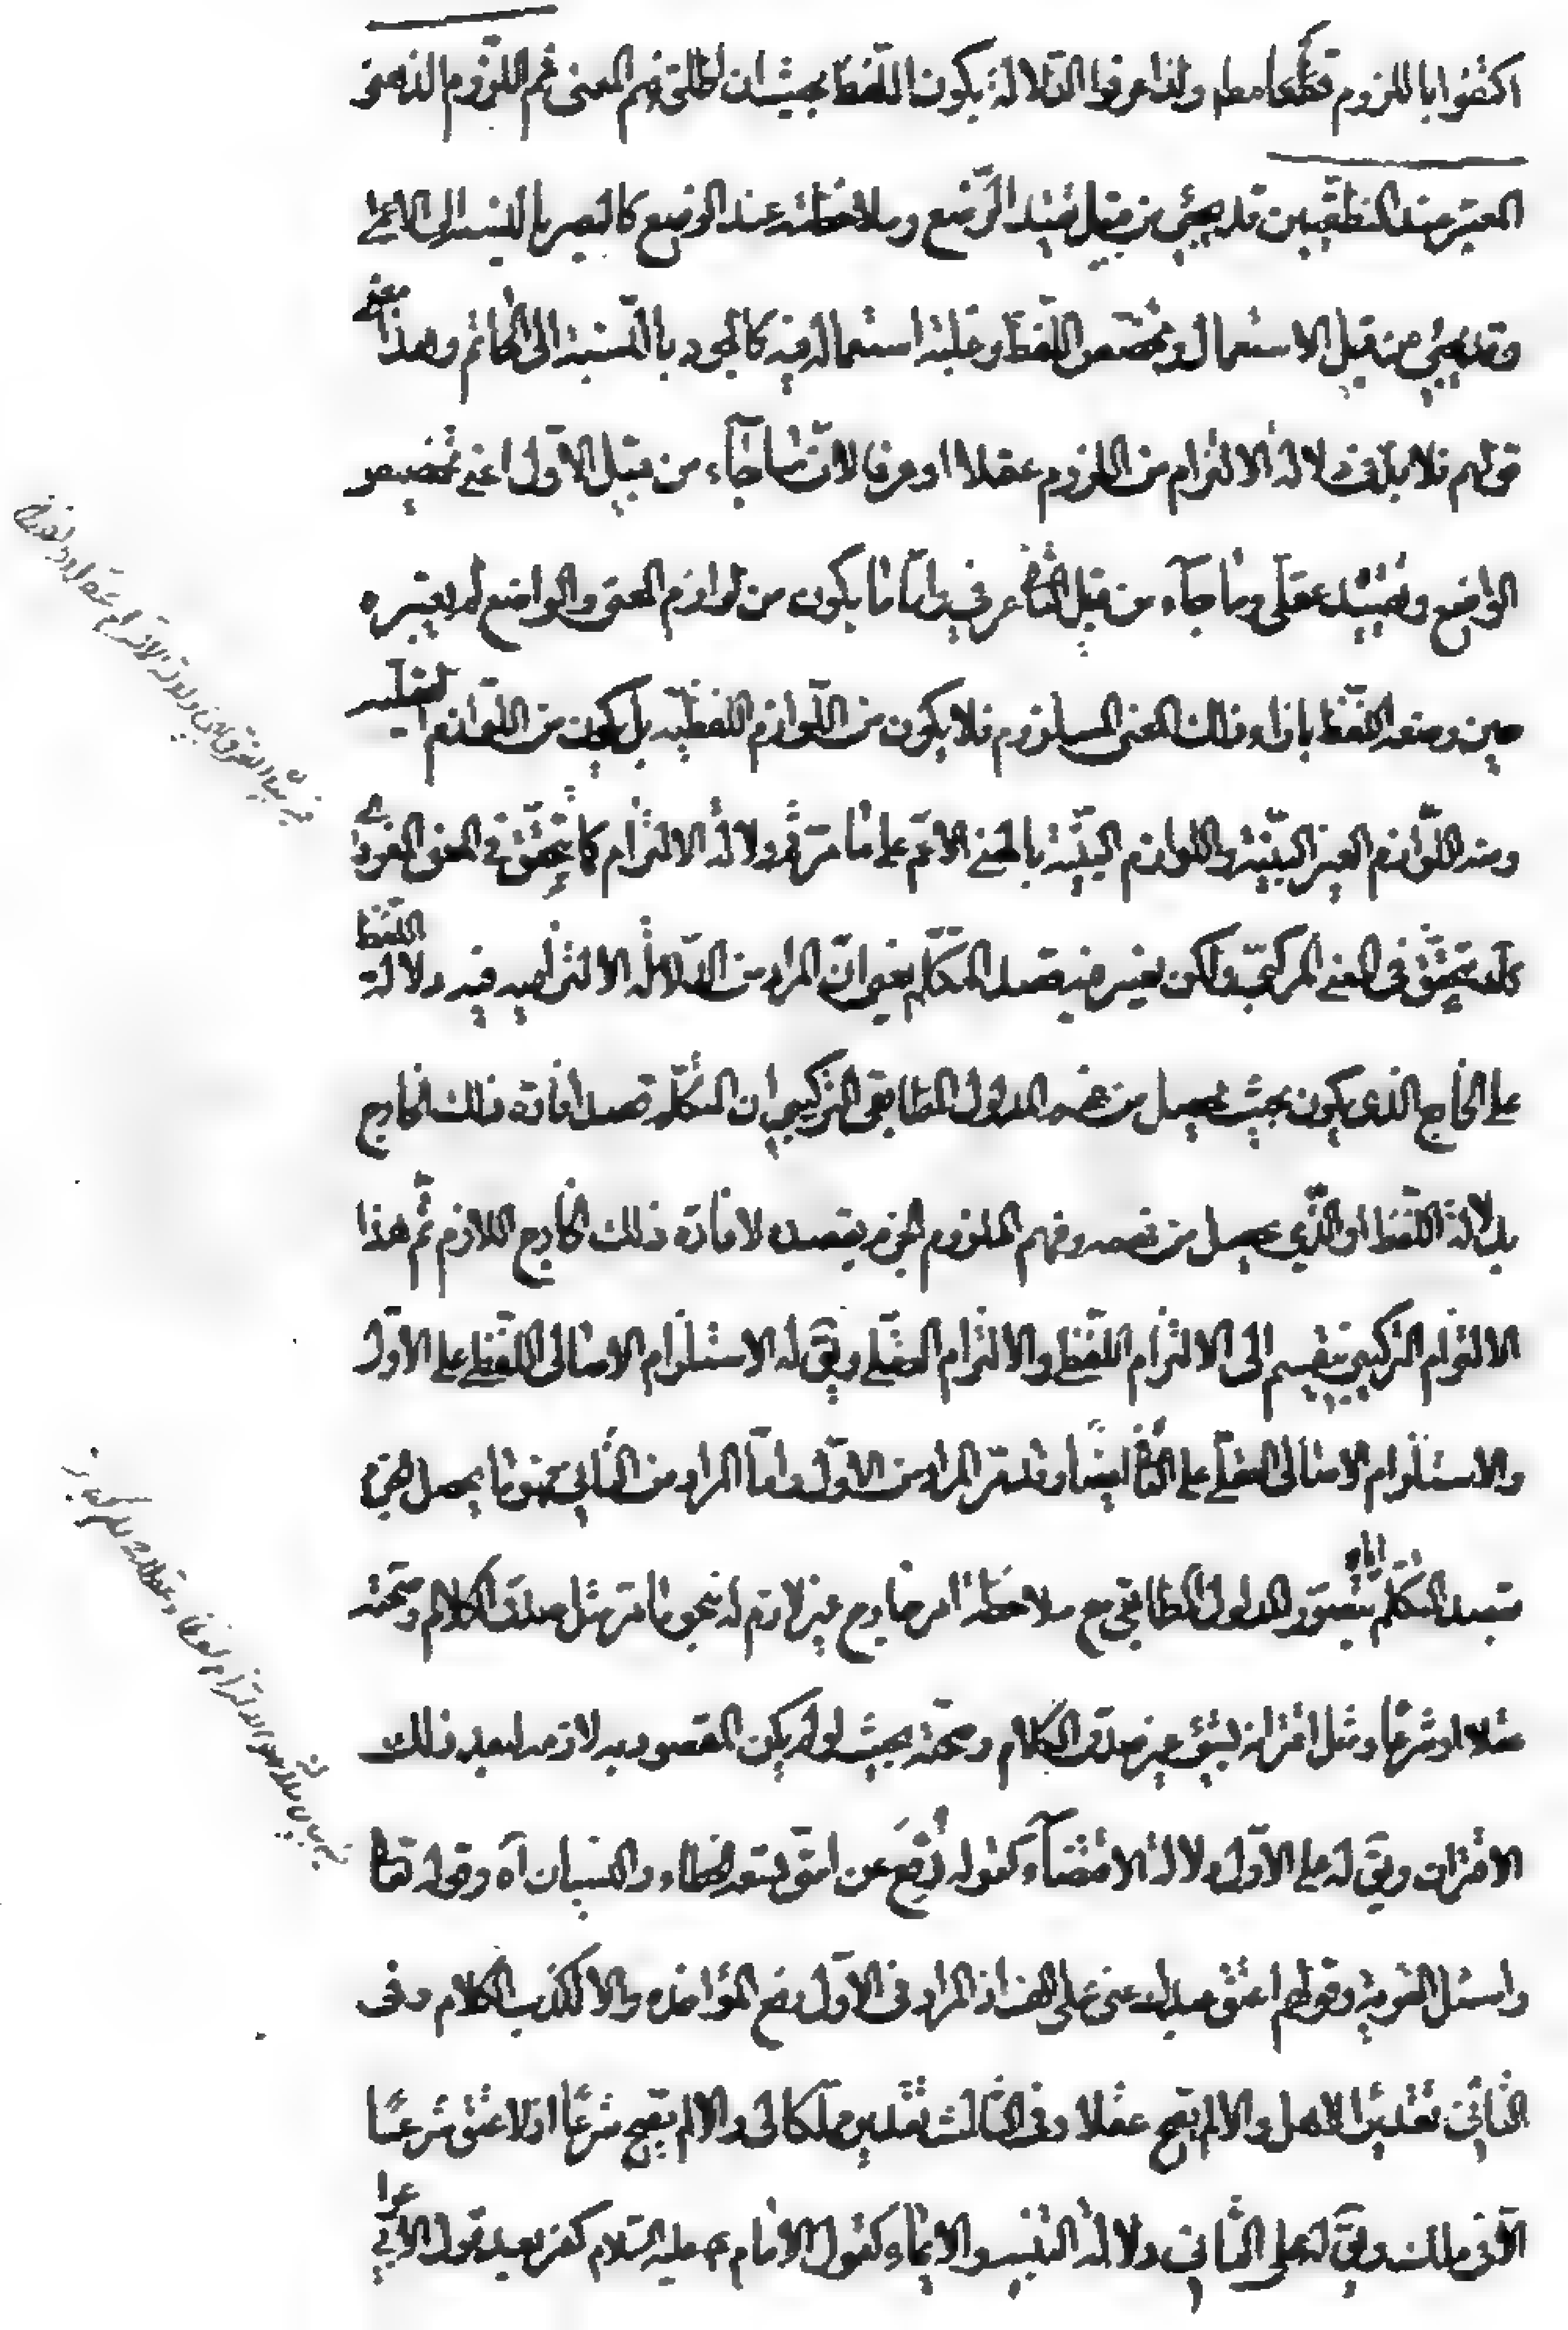 اكتفوا باللزوم قطعا مط ولذا عرفوا الدّلالة بكون اللّفظ بحيث ان اطلق فهم المعنى ثم اللّزوم الذهنى
المعتبر عند المنطقيين قد يجئ من قبل تقييد الوضع وملاحظته عند الوضع كالبصر بالنسبة الى الاعمى
وقد يجئ من قبل الاستعمال وتخصص اللّفظ وغلبة استعماله فيه كالجود بالنّسبة الى الحاتم وهذا معنى
قولهم فلا بد فى دلالة الالتزام من اللزوم عقلا او عرفا لانّ ما جاء من قبل الاوّل اعنى تخصيص
الواضع وتقييده عقلى وما جاء من قبل الثانى عرفى وامّا ما يكون من لوازم المعنى والواضع لم يعتبره
حين وضعه اللّفظ بازاء ذلك المعنى الملزوم فلا يكون من اللّوازم اللفظيه بل يكون من اللّوازم العقليه
ومنه اللّوازم الغير البيّنة واللوازم البيّنة بالمعنى الاعمّ على ما مرّ ثم دلالة الالتزام كما يتحقّق فى المعنى المفرد
كك يتحقّق فى المعنى المركّب ولكن يعتبر فيه قصد المتكلّم يعنى انّ المراد من الدّلالة الالتزاميه فيه دلالة اللّفظ
على الخارج الذى يكون بحيث يحصل من فهم المدلول المطابقى التركيبى ان المتكلّم قصد افادة ذلك الخارج
بدلالة اللّفظ او الّذى يحصل من تصوره وفهم الملزوم الجزم بقصده لافادة ذلك الخارج اللازم ثمّ هذا
الالتزام التركيبى ينقسم الى الالتزام اللّفظى والالتزام العقلى ويقّ له الاستلزام الاصالى اللّفظى على الاوّل
والاستلزام الاصالى العقلى على الثانى ايضا وقد مرّ المراد من الاوّل وامّا المراد من الثّانى فهو ما يحصل الجزم
بقصد المتكلّم اياه بتصوّر المدلول المطابقى مع ملاحظة امر خارج غير لازم له بنحو ما مرّ مثل صدق الكلام وصحّته
عقلا او شرعا ومثل اقترانه بشئ غير صدق الكلام وصحّته بحيث لو لم يكن المقصود به لازمه لبعد ذلك
الاقتران ويقّ له على الاوّل دلالة الاقتضاء كقوله رُفِعَ عن امّتى تسعة الخطاء والنسيان آه وقوله تعا
واسئل القرية وقولهم اعتق عبدك عنى على الف اذ المراد فى الاوّل رفع المؤاخذه والا لكذب الكلام وفى
الثّانى تقدير الاهل والا لم يصح عقلا وفى الثّالث تقديره مملّكا لى والا لم يصح شرعًا اذ لا عتق شرعًا
الّا فى ملك ويقّ له على الثّانى دلالة التنبيه والايماء كقول الامام عليه السّلام كفّر بعد قول الاعرابى